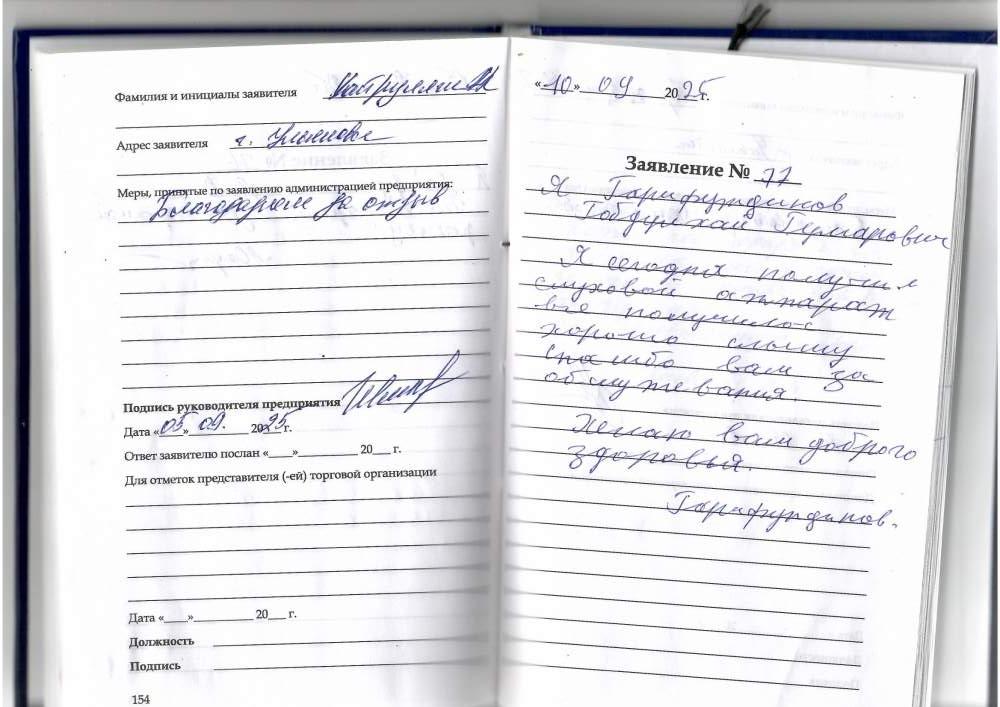 Фамилия и инициалы заявителя
Адрес заявителя г. Ульяновск
Меры, принятые по заявлению администрацией предприятия:
Благодарим за отзыв
Подпись руководителя предприятия
Дата «05» 09. 2025г.
Ответ заявителю послан «___»__________ 20___ г.
Для отметок представителя (-ей) торговой организации
Дата «____»__________ 20___ г.
Должность
Подпись
154
«10» 09 2025г.
Заявление № 77
Я Гарифундинов
Гобдулхай Гумарович
Я сегодня получил
слуховой аппарат
все получилос
хорошо слышу
Спасибо вам за
обслужевания.
Желаю вам доброго
здоровья.
Гарифундинов.